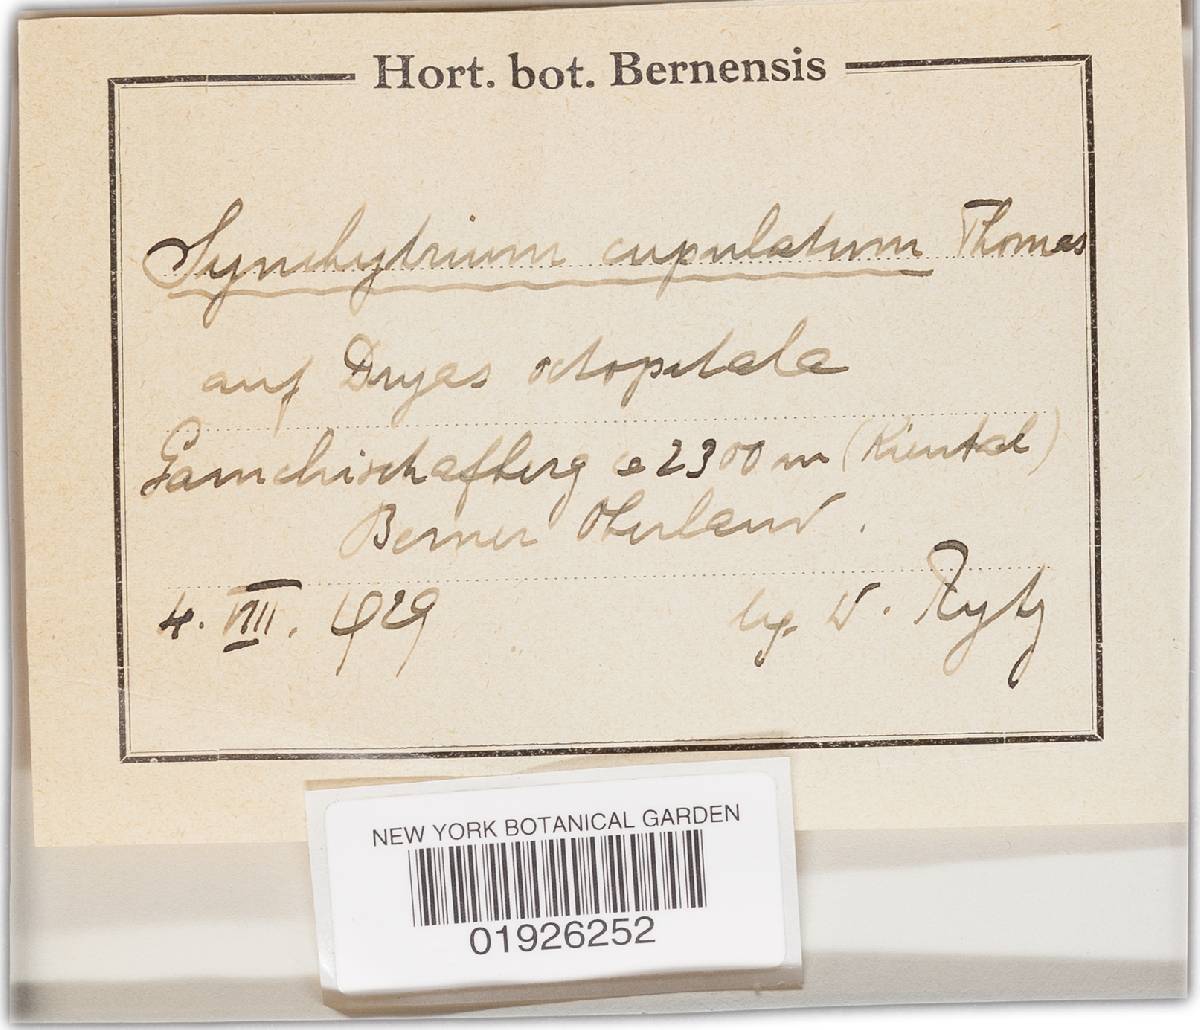 Hort. bot. Bernensis
Synchytrium cupulatum Thomas
auf Dryas octopetala
Gamchischafberg ca 2300 m (Kiental)
Berner Oberland.
4. VIII. 1929
leg. W. Rytz
NEW YORK BOTANICAL GARDEN
01926252